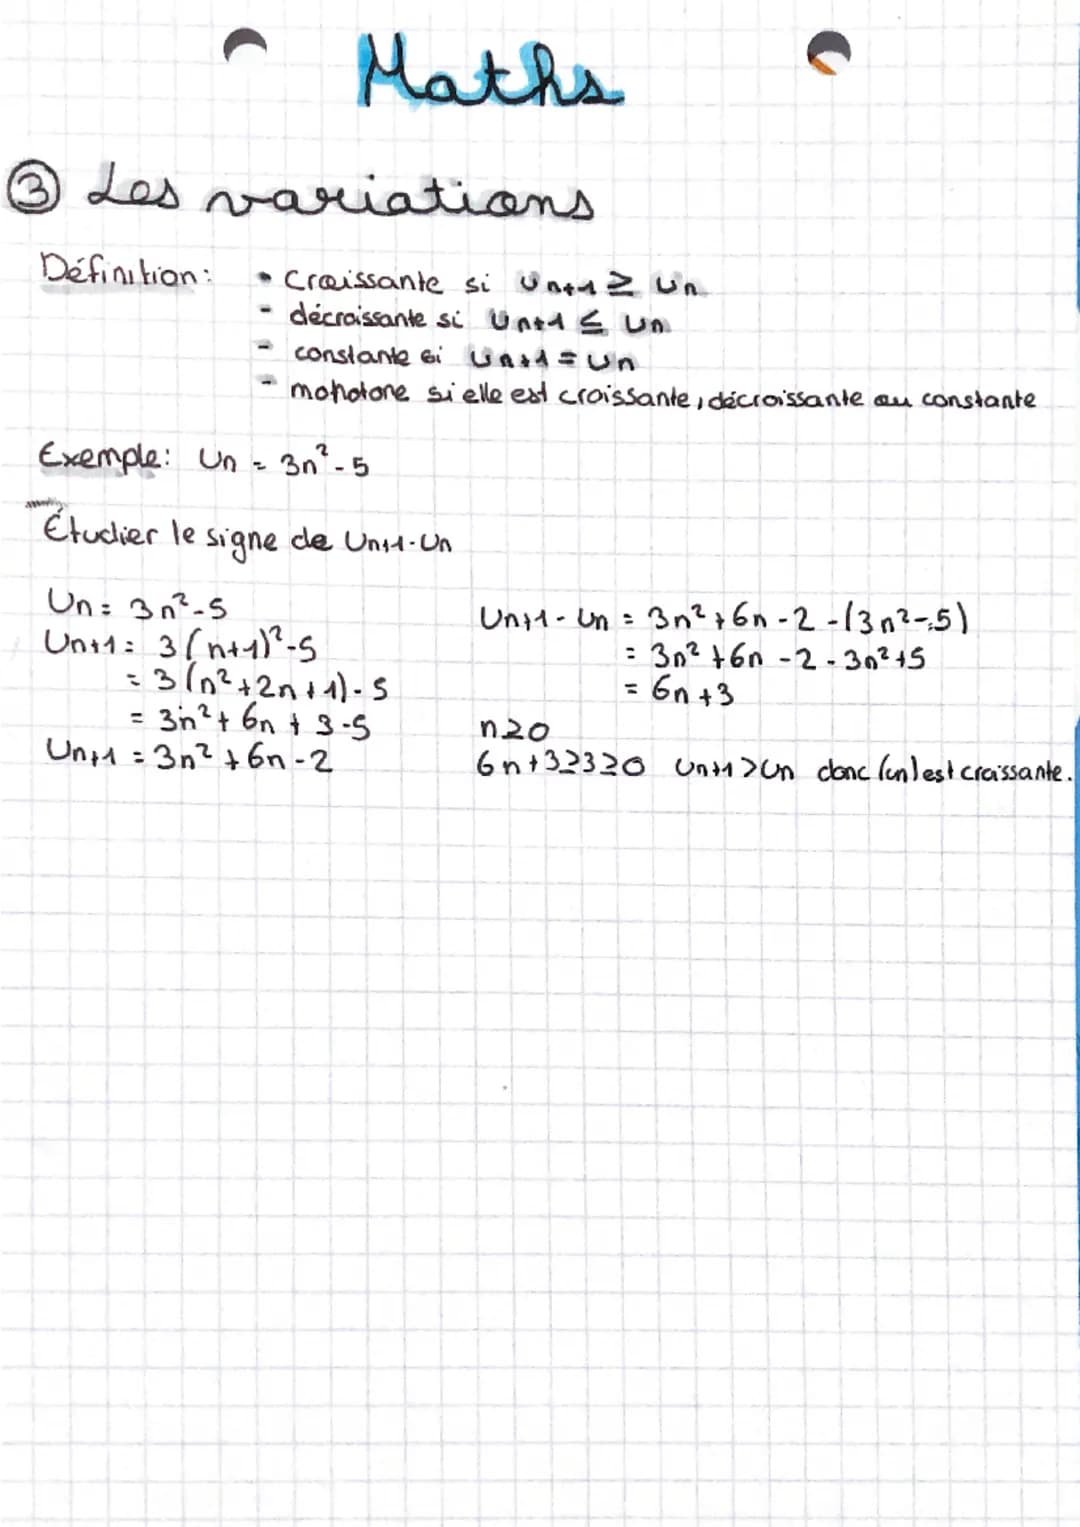 Maths
③ Les variations
Définition: • Croissante si Un+1 ≥ Un
- décroissante si Un+1 ≤ Un
- constante si Un+1 = Un
- monotone si elle est croissante, décroissante ou constante
Exemple: Un = 3n² - 5
Étudier le signe de Un+1 - Un
Un = 3n² - 5
Un+1 = 3(n+1)² - 5
= 3(n² + 2n + 1) - 5
= 3n² + 6n + 3 - 5
Un+1 = 3n² + 6n - 2
Un+1 - Un = 3n² + 6n - 2 - (3n² - 5)
= 3n² + 6n - 2 - 3n² + 5
= 6n + 3
n ≥ 0
6n + 3 ≥ 3 ≥ 0 Un+1 > Un donc (un) est croissante.